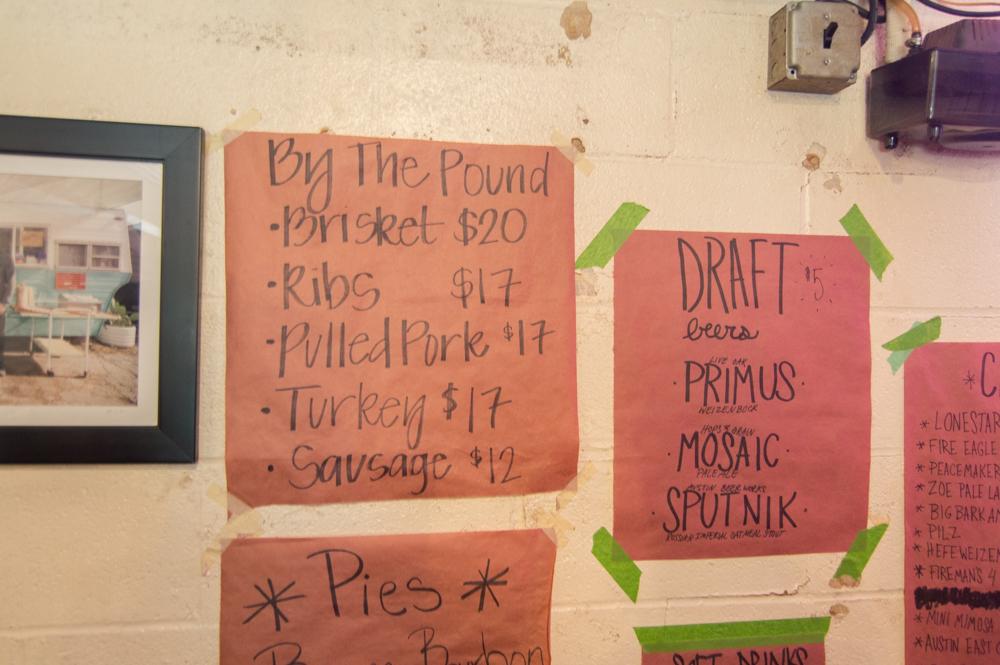 By The Pound
·Brisket $20
·Ribs $17
·Pulled Pork $17
·Turkey $17
·Sausage $12
* Pies *
Bourbon
DRAFT $5
beers
LIVE OAK
·PRIMUS·
WEIZENBOCK
HOPS & GRAIN
·MOSAIC·
PALE ALE
AUSTIN BEER WORKS
·SPUTNIK·
RUSSIAN IMPERIAL OATMEAL STOUT
SOFT DRINKS
* C
* LONESTAR
* FIRE EAGLE
* PEACEMAKER
* ZOE PALE LA
* BIG BARK AM
* PILZ
* HEFEWEIZEN
* FIREMANS 4
* MINI MIMOSA
* AUSTIN EAST